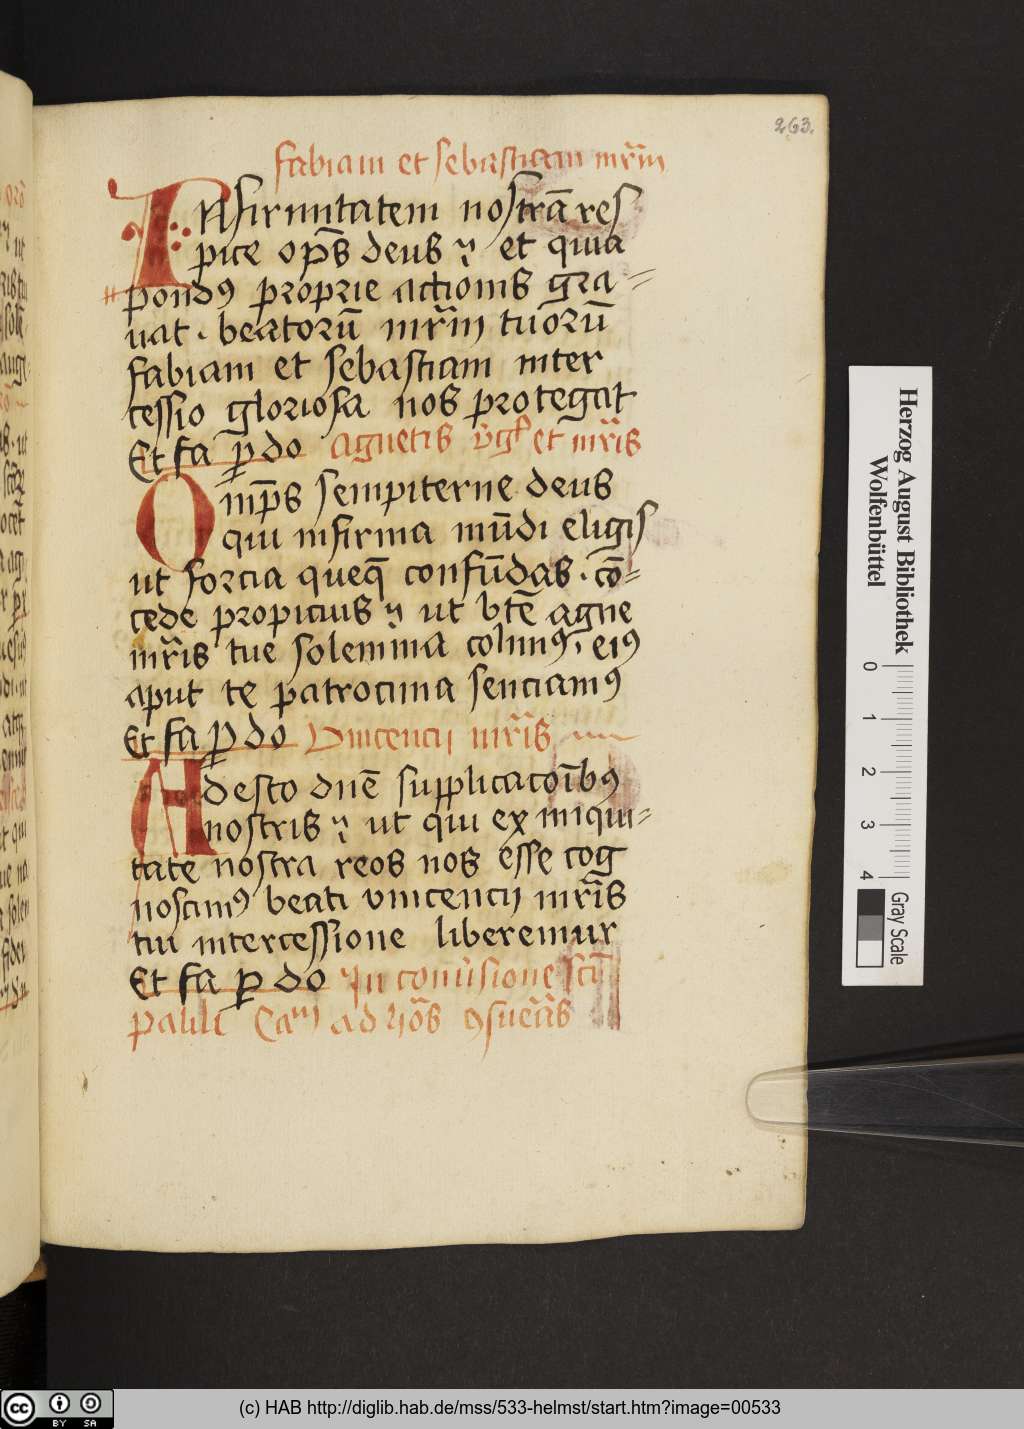 263.
fabiani et sebastiani mr̄m̄
Infirmitatem nostrā res
pice op̄s deus et quia
pondꝰ proprie actionis gra=
uat . beatorū mr̄m tuorū
fabiani et sebastiani inter
cessio gloriosa nos protegat
Et fa ꝑ do agnetis v̄g̉ et mr̄is
Omp̄s sempiterne deus
qui infirma mūdi eligis
ut forcia queq̄ confūdas . cō=
cede propicius ut btē agne
mr̄is tue solemnia colimꝰ . eiꝰ
aput te patrocinia senciamꝰ
Et fa ꝑ do Vincencij mr̄is
Adesto dnē supplicacoībꝰ
nostris ut qui ex iniqui=
tate nostra reos nos esse cog
noscimꝰ beati vincencij mr̄is
tui intercessione liberemur
Et fa ꝑ do In conūsione sc̄i
pauli
Herzog August Bibliothek
Wolfenbüttel
0 1 2 3 4
Gray Scale
cc BY SA
(c) HAB http://diglib.hab.de/mss/533-helmst/start.htm?image=00533